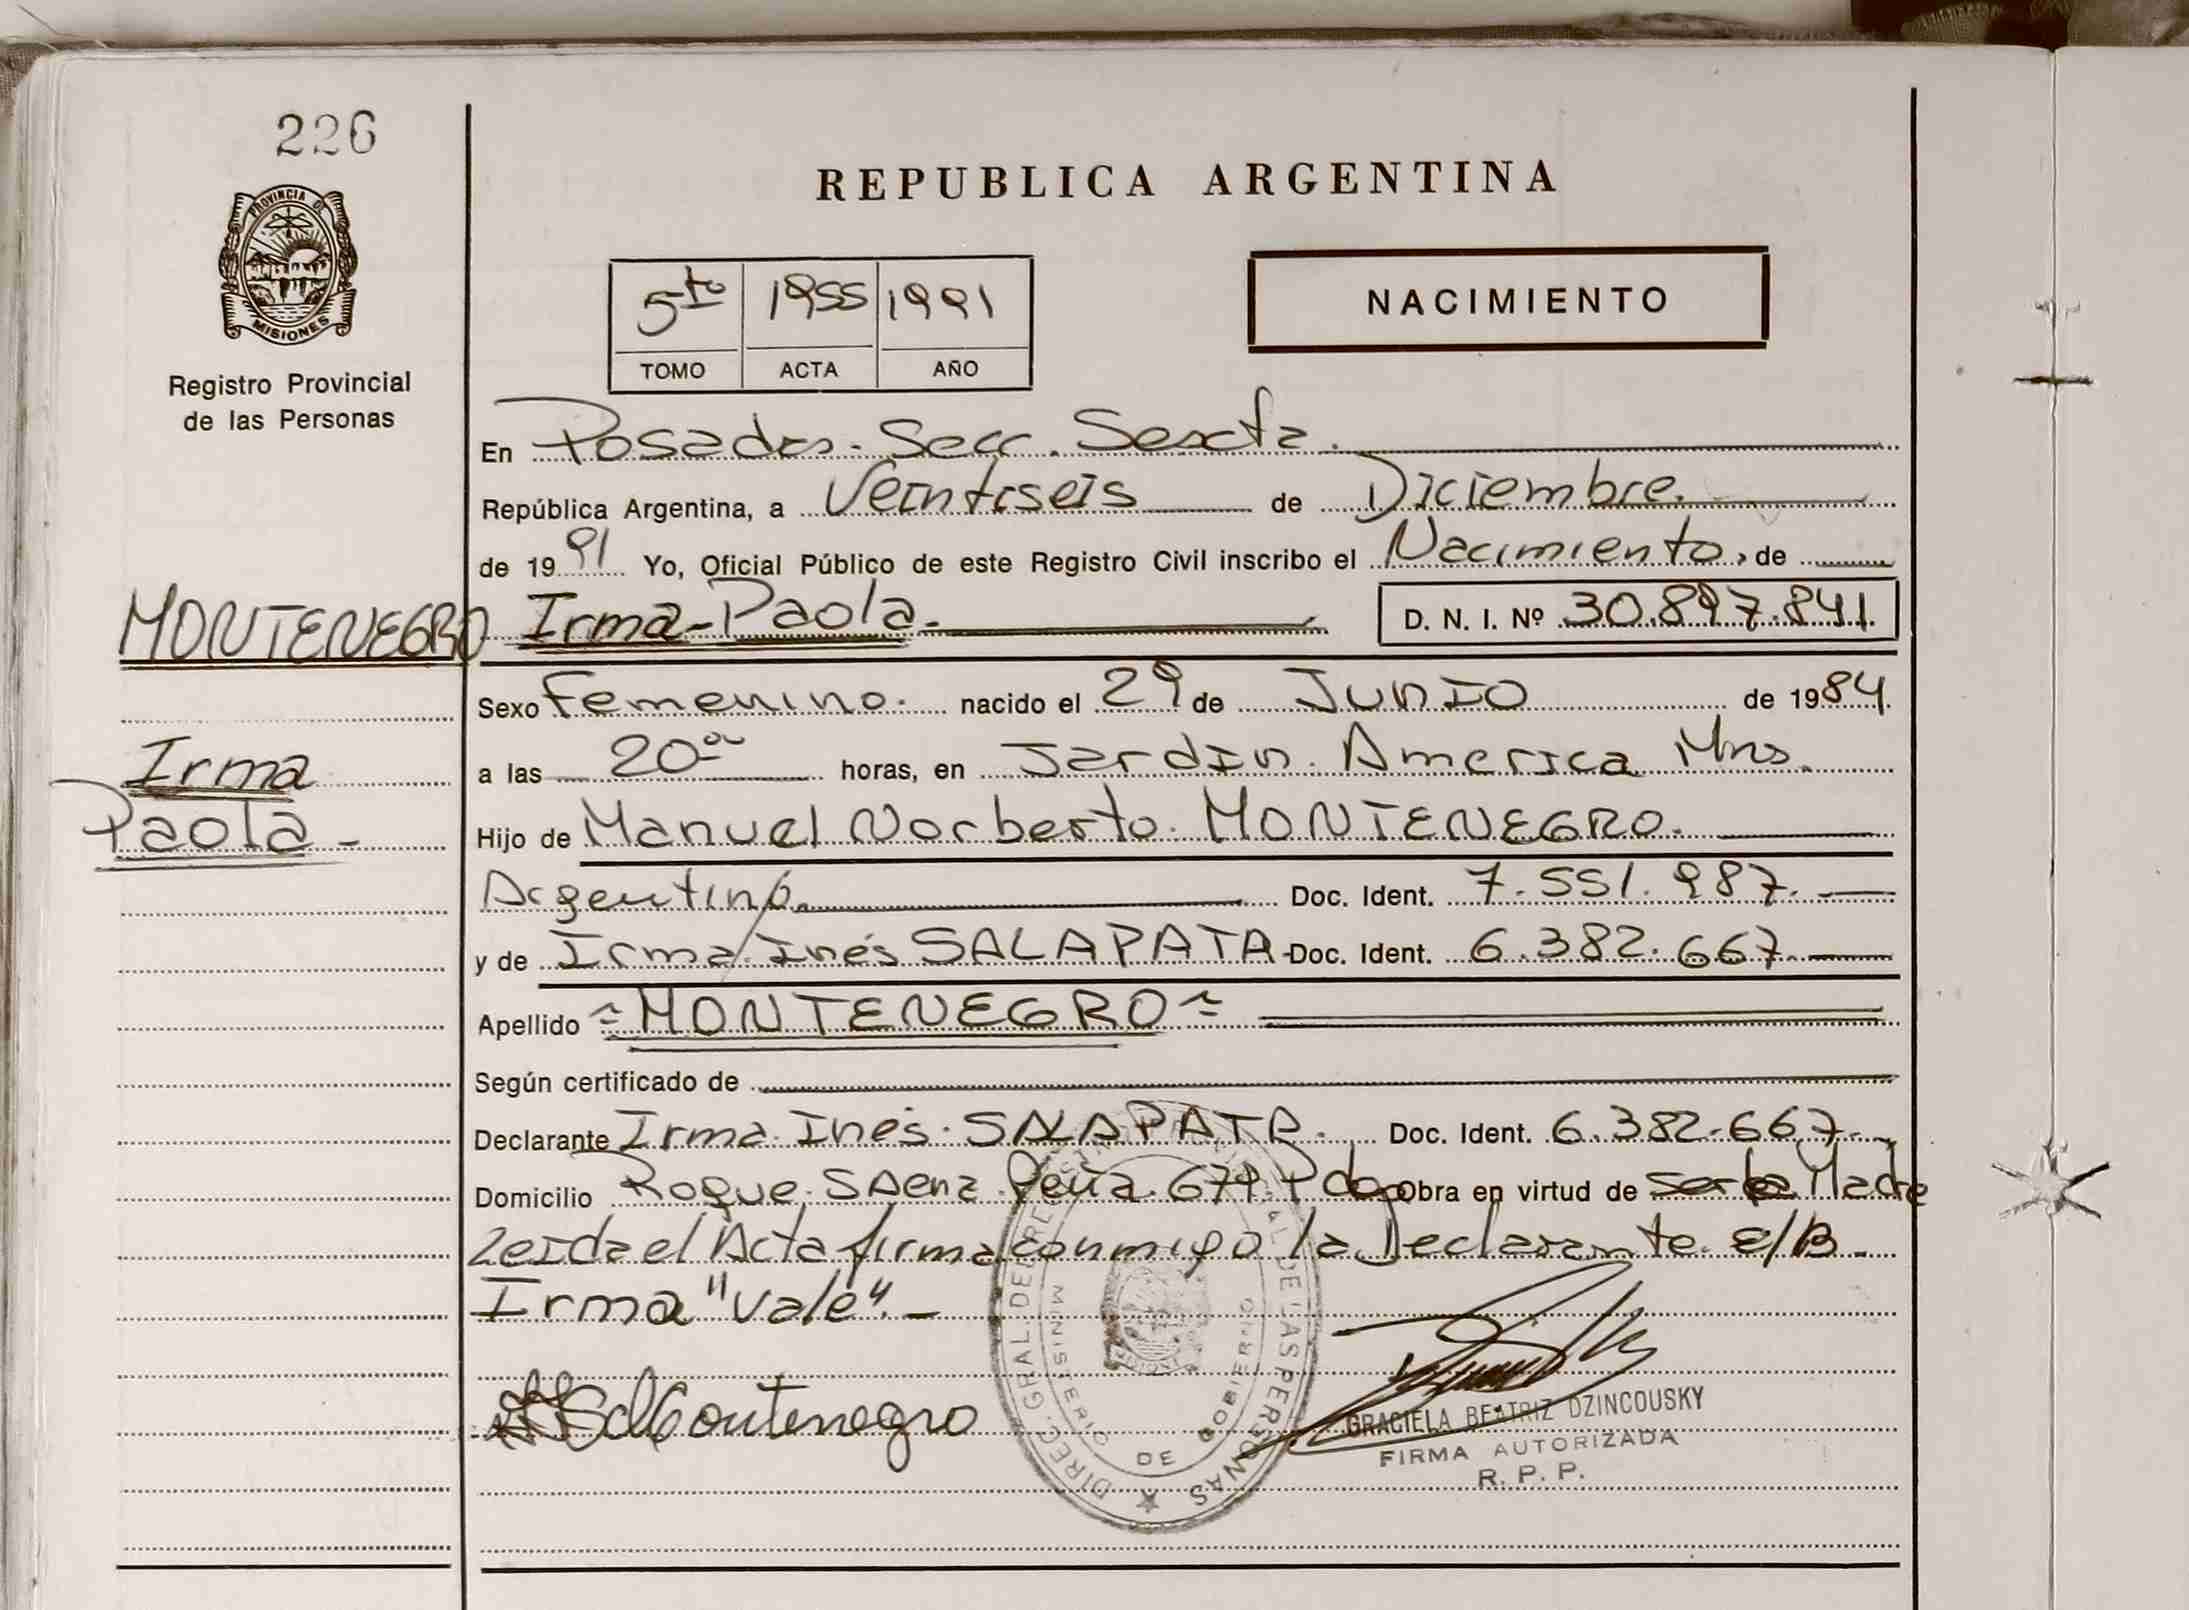 226
PROVINCIA DE
MISIONES
Registro Provincial
de las Personas
MONTENEGRO
Irma
Paola -
REPUBLICA ARGENTINA
5to 1955 1991
TOMO ACTA AÑO
NACIMIENTO
En Posadas. Secc. Sexta.
República Argentina, a Veintiseis de Diciembre.
de 1991 Yo, Oficial Público de este Registro Civil inscribo el Nacimiento, de
Irma-Paola. D. N. I. Nº 30.897.841.
Sexo Femenino. nacido el 29 de JUNIO de 1984.
a las 20 horas, en Jardin. America Mns.
Hijo de Manuel Norberto. MONTENEGRO.
Argentino. Doc. Ident. 7.551.987.
y de Irma Inés SALAPATA - Doc. Ident. 6.382.667.
Apellido MONTENEGRO
Según certificado de
Declarante Irma. Inés. SALAPATA. Doc. Ident. 6.382.667.
Domicilio Roque. SAenz. Peña. 679. Pdas Obra en virtud de ser la Madre
Leida el Acta firma conmigo la Declarante. E/B.
Irma "Vale". -
de Montenegro
DIREC. GRAL. DEL REGISTRO PROVINCIAL DE LAS PERSONAS
MINISTERIO DE GOBIERNO
GRACIELA BEATRIZ DZINCOUSKY
FIRMA AUTORIZADA
R. P. P.